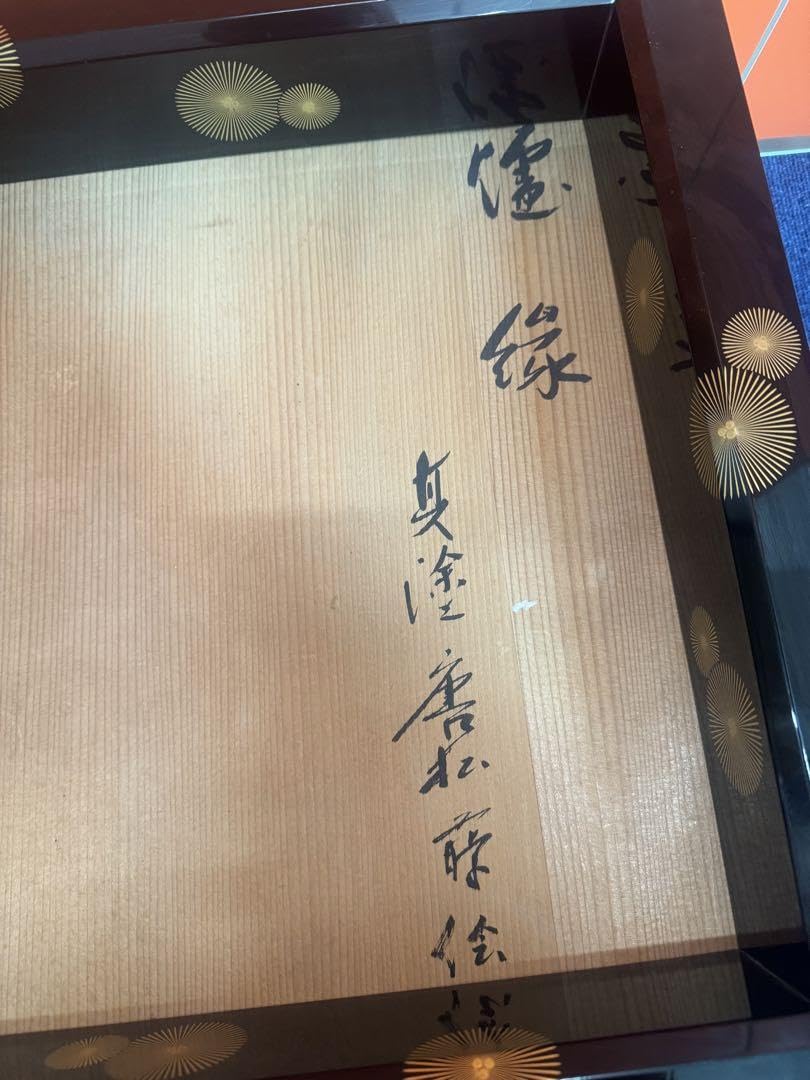 爐縁
真塗 唐松蒔絵